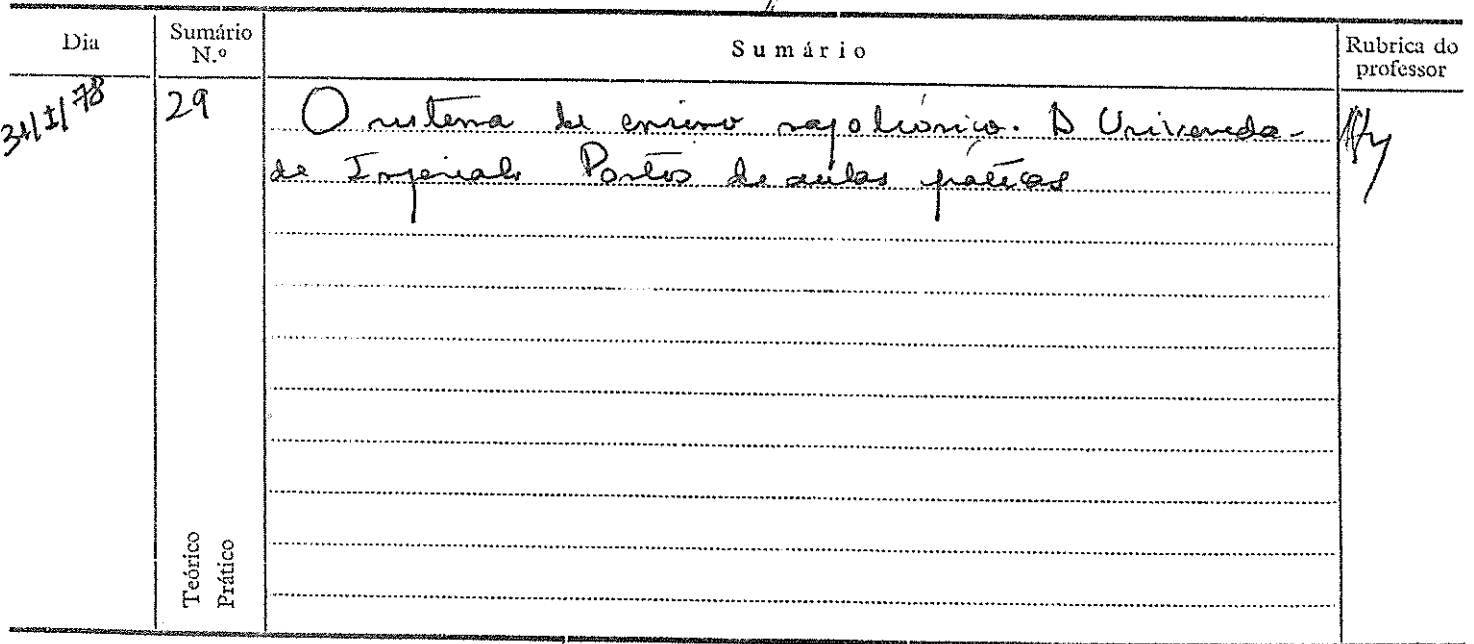 Dia
Sumário N.º
Sumário
Rubrica do professor
31/I/78
29
O sistema de ensino napoleónico. A Universida-
de Imperial. de aulas práticas
Teórico
Prático